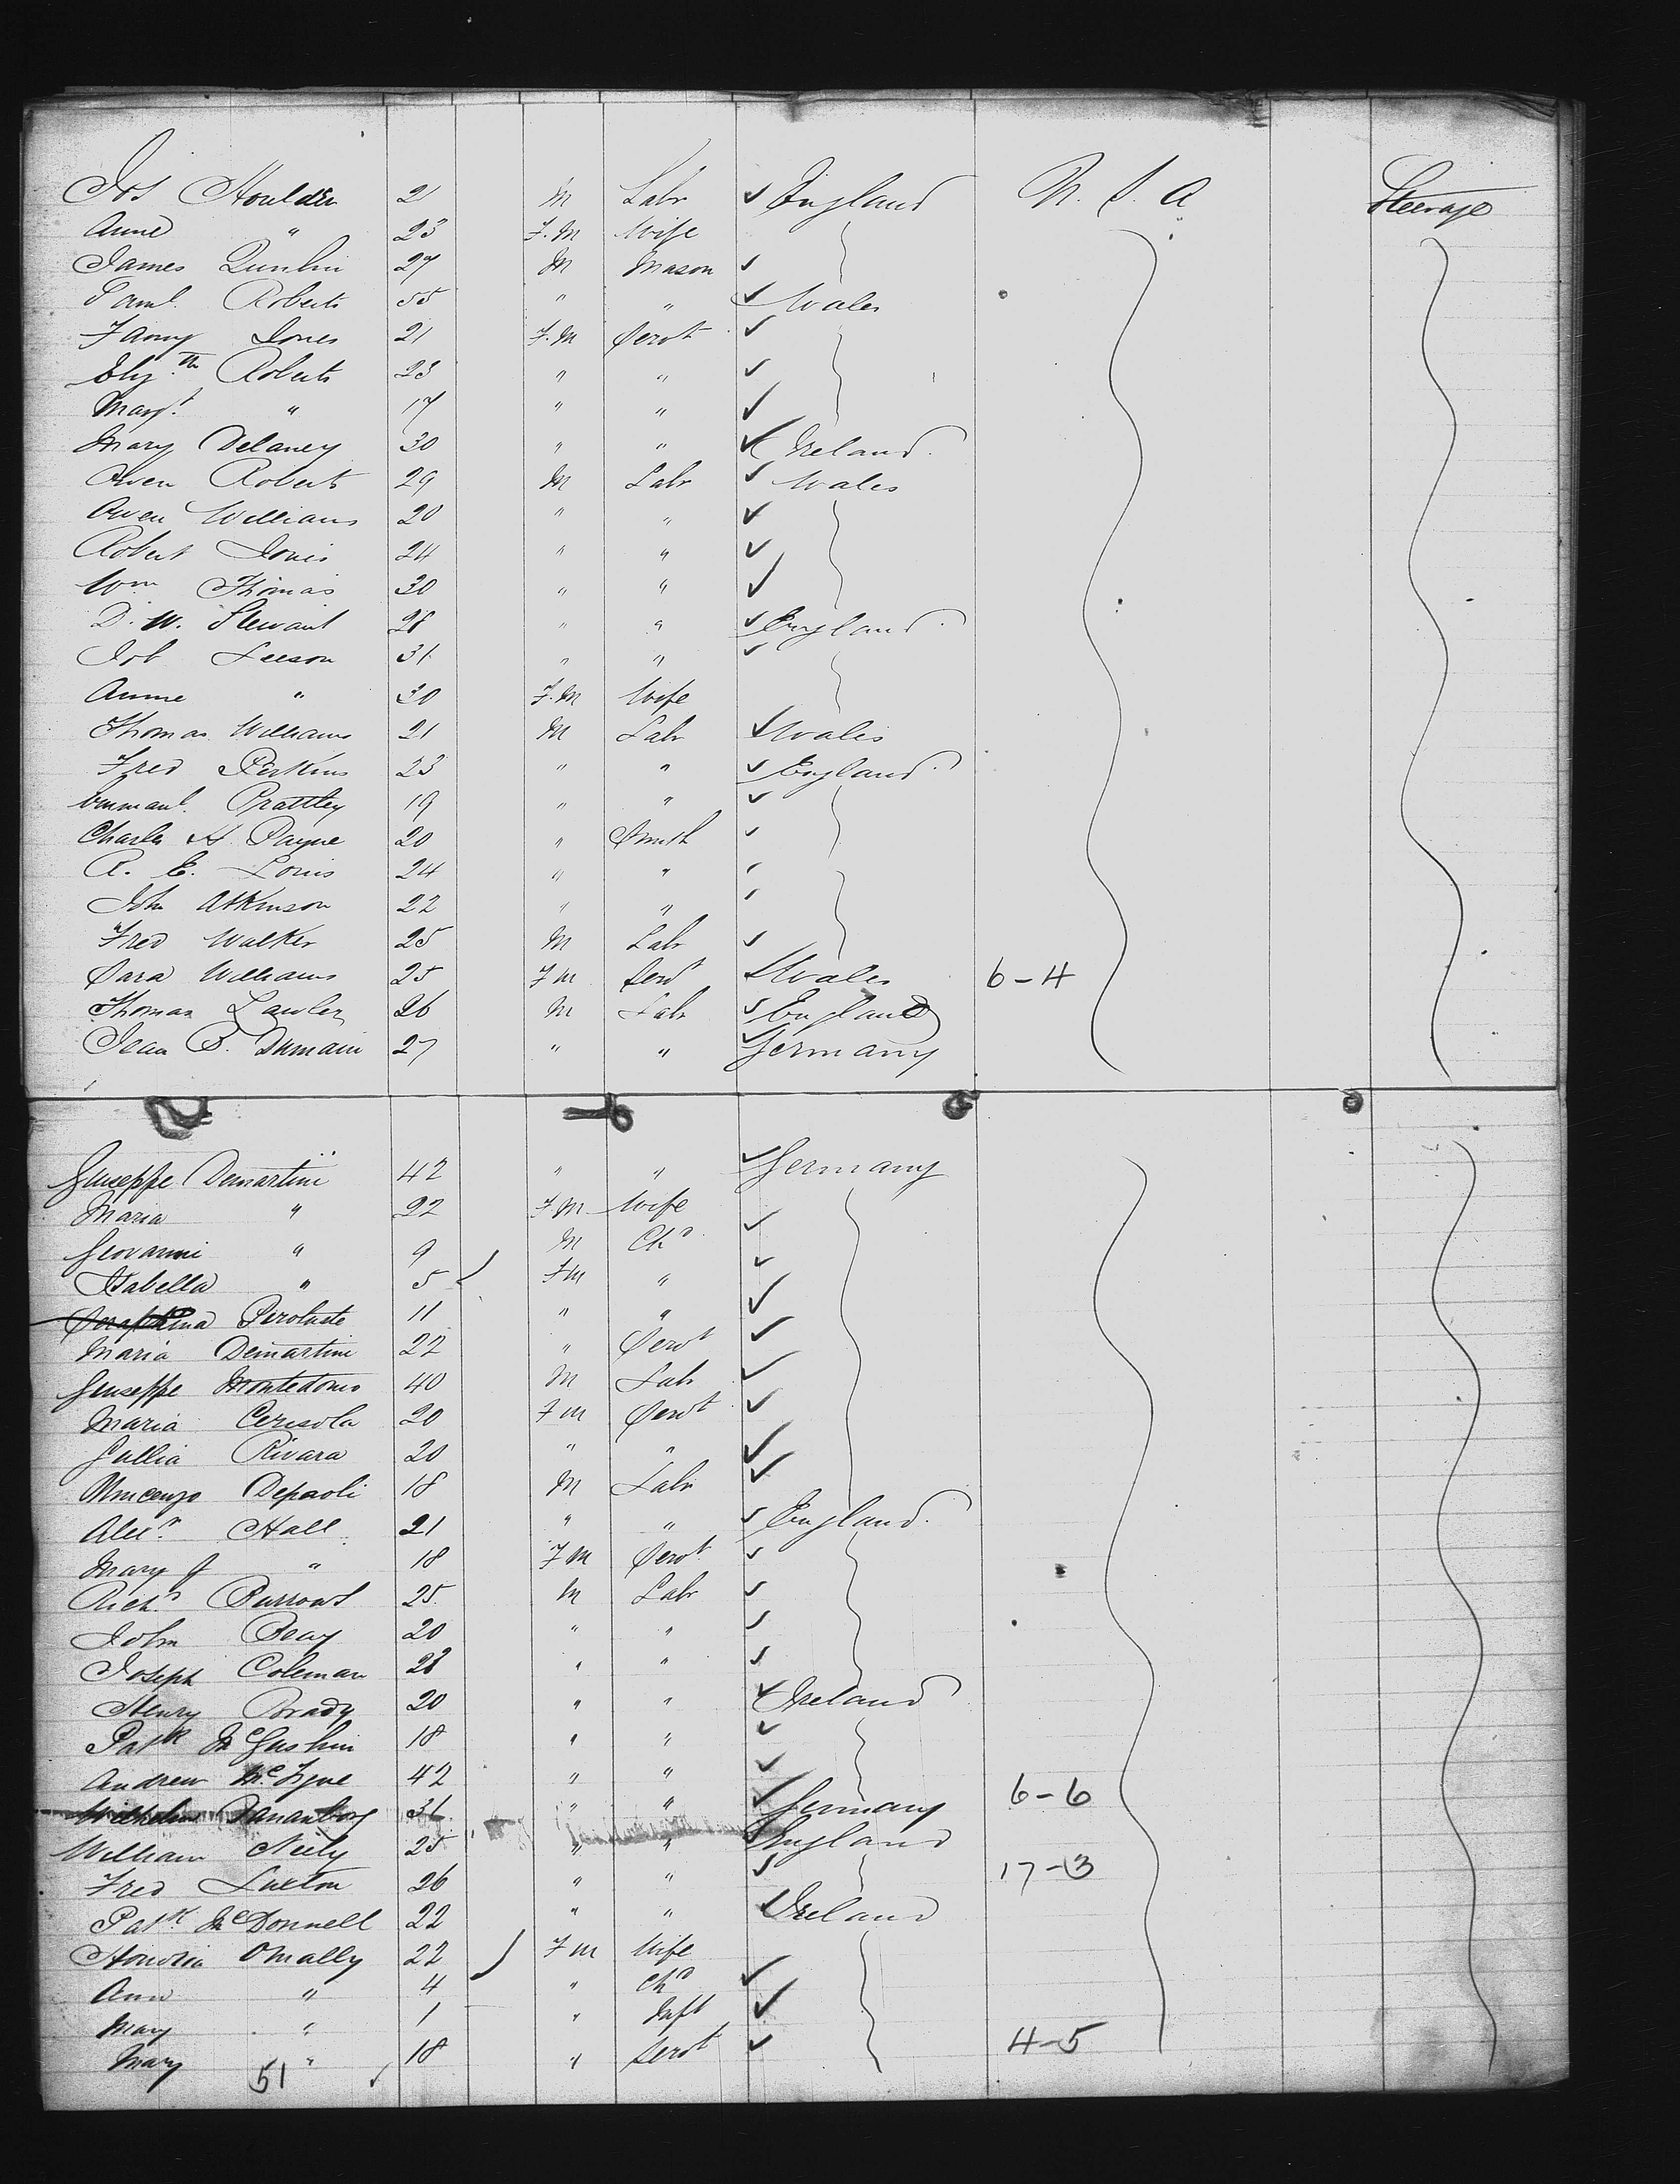 Jos Houlder 21 M Labr ✓ England U. S. A Steerage
Anne " 23 F.M Wife
James Quinlin 27 M Mason ✓
Saml. Roberts 55 " " ✓ Wales
Fanny Jones 21 F.M Servt ✓
Elizth Roberts 23 " " ✓
Margt " 17 " " ✓
Mary Delaney 30 " " ✓ Ireland.
Owen Roberts 29 M Labr ✓ Wales
Owen Williams 20 " " ✓
Robert Jones 24 " " ✓
Wm Thomas 30 " " ✓
D. W. Stewart 28 " " ✓ England.
Job Leeson 31 " " ✓
Anne " 30 F.M Wife
Thomas Williams 21 M Labr ✓ Wales
Fred Perkins 23 " " ✓ England.
Emmanl. Brattley 19 " " ✓
Charles H Payne 20 " Smith ✓
R. E. Louis 24 " " ✓
John Atkinson 22 " " ✓
Fred Walker 25 M Labr ✓
Sara Williams 25 F M Servt ✓ Wales 6-4
Thomas Lawler 26 M Labr ✓ England
Jean B. Dumain 27 " " ✓ Germany
Giuseppe Demartini 42 " " ✓ Germany
Maria " 22 F M Wife
Geovanni " 9 M Chd ✓
Isabella " 5 ✓ F M " ✓
11 " " ✓
Maria Demartini 22 " Servt ✓
Geuseppe 40 M Labr ✓
Maria Cerisola 20 F M Servt ✓
Gullia Rivara 20 " " ✓
Vincenzo Depaoli 18 M Labr ✓
Alexr. Hall 21 " " ✓ England.
Mary J " 18 F M Servt ✓
Richd Burrows 25 M Labr ✓
John 20 " " ✓
Joseph Coleman 28 " " ✓
Henry Brady 20 " " ✓ Ireland
Patk McGushin 18 " " ✓
Andrew Mc 42 " " ✓
Wilhelm 31 " " ✓ Germany 6-6
William Neily 25 " " England
Fred Luxton 26 " " ✓ 17-3
Patk McDonnell 22 " " ✓ Ireland
Honoria OMally 22 ✓ F M Wife
Ann " 4 " Chd ✓
Mary " 1 " Inft ✓
Mary " 18 " Servt ✓ 4-5
51 ✓